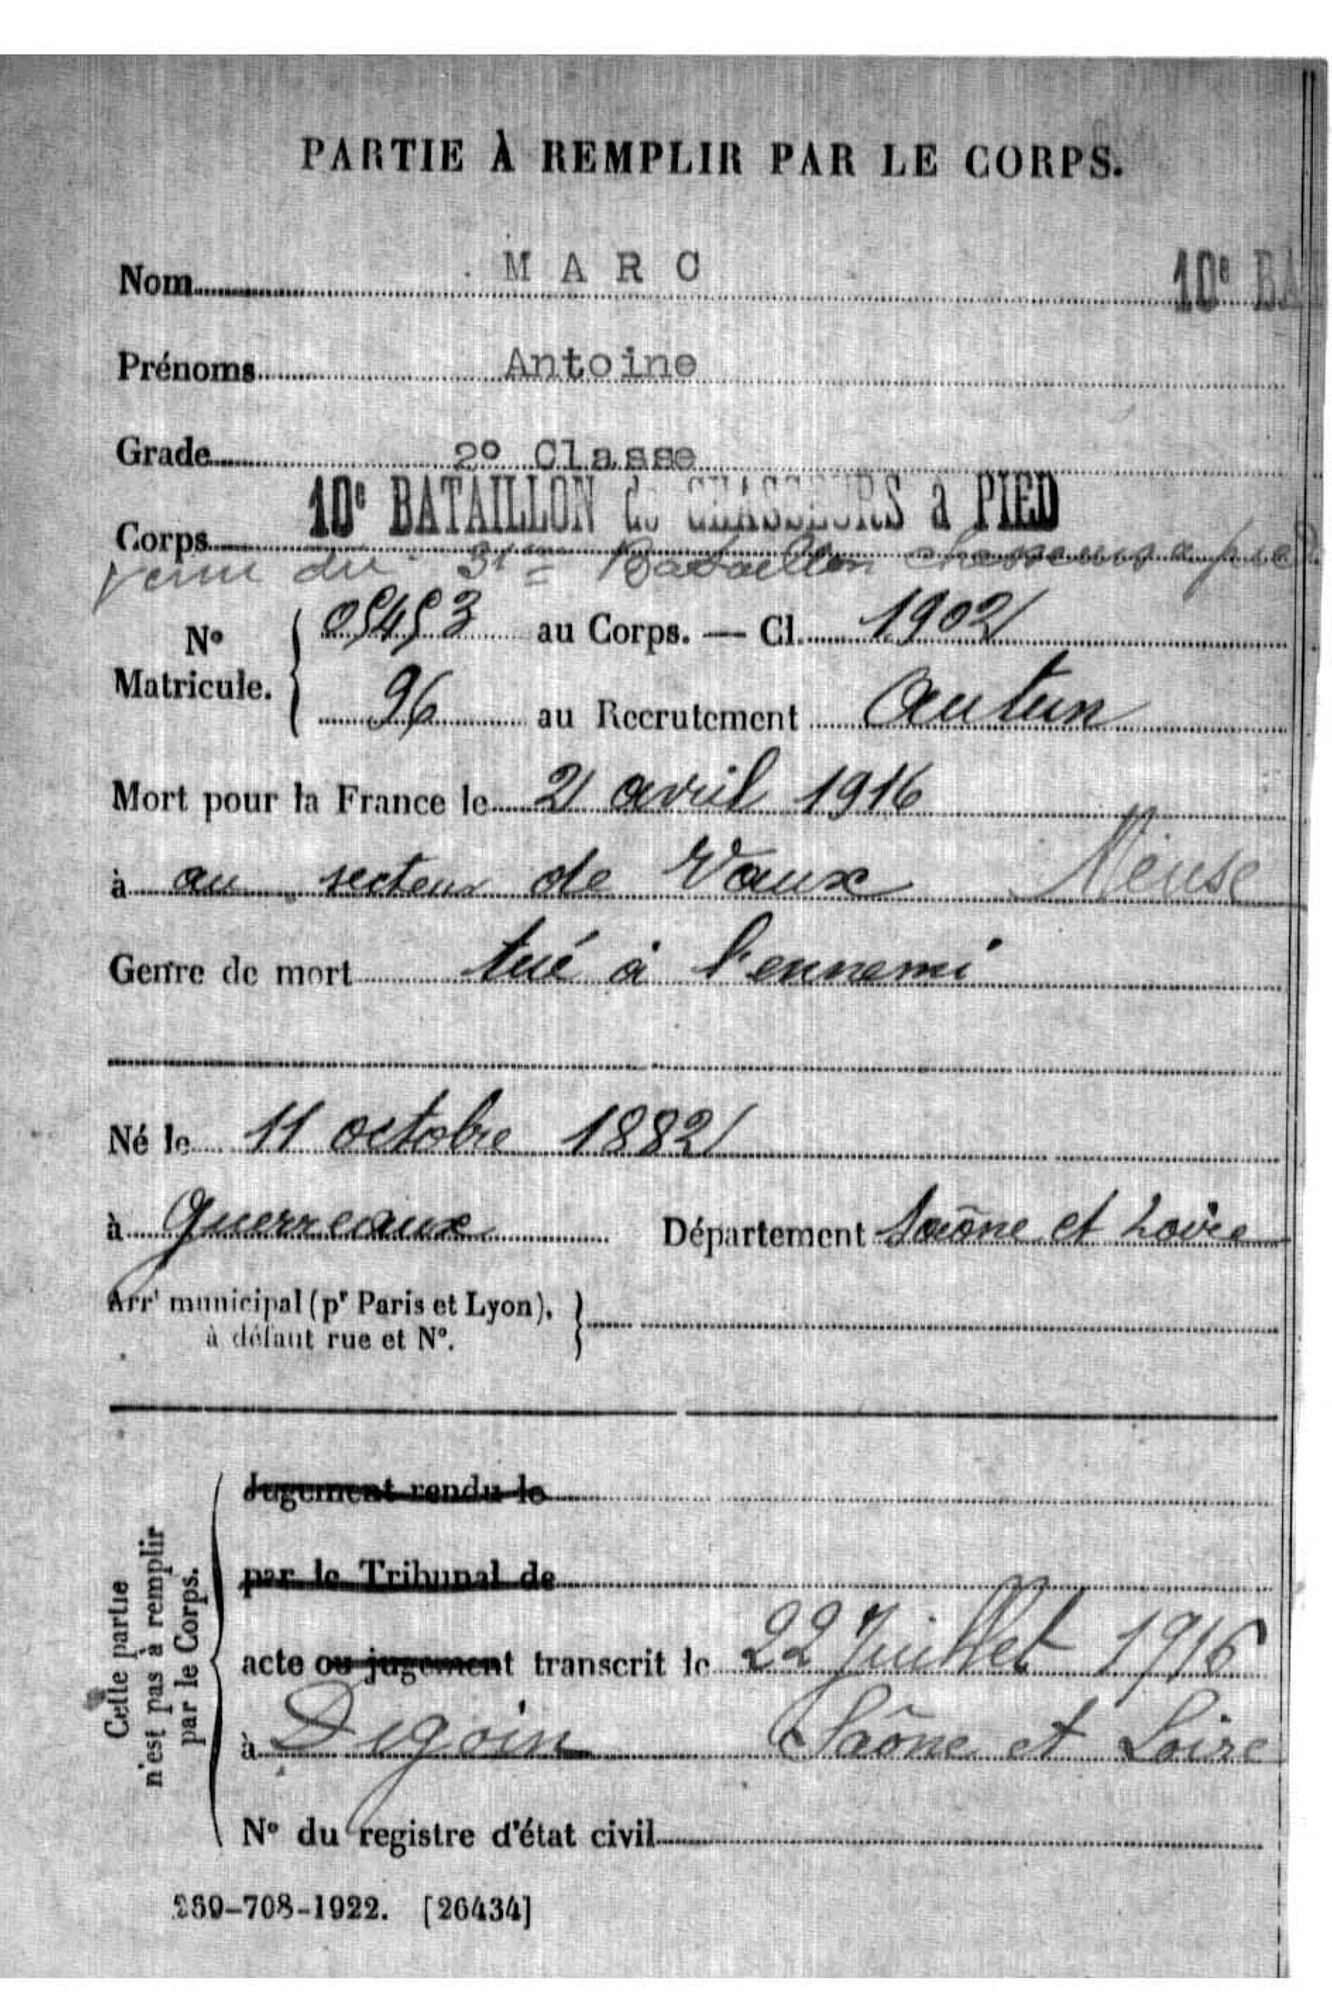 PARTIE À REMPLIR PAR LE CORPS.
Nom MARC
10e BA
Prénoms Antoine
Grade 2o Classe
Corps 10e BATAILLON de CHASSEURS à PIED
Venu du 31eme Bataillon chasseurs a pied
No Matricule. { 05453 au Corps. — Cl. 1902
96 au Recrutement Autun
Mort pour la France le 2 avril 1916
à au secteur de Vaux Meuse
Genre de mort tué à l'ennemi
Né le 11 octobre 1882
à Guerreaux Département Saône et Loire
Arrt municipal (pr Paris et Lyon), }
à défaut rue et No.
Cette partie
n'est pas à remplir
par le Corps.
Jugement rendu le
par le Tribunal de
acte ou jugement transcrit le 22 Juillet 1916
à Digoin Saône et Loire
No du registre d'état civil
-708-1922. [26434]